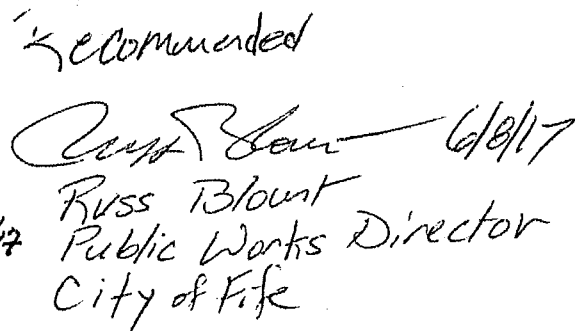 Recommended
Russ Blount 6/8/17
Russ Blount
Public Works Director
City of Fife